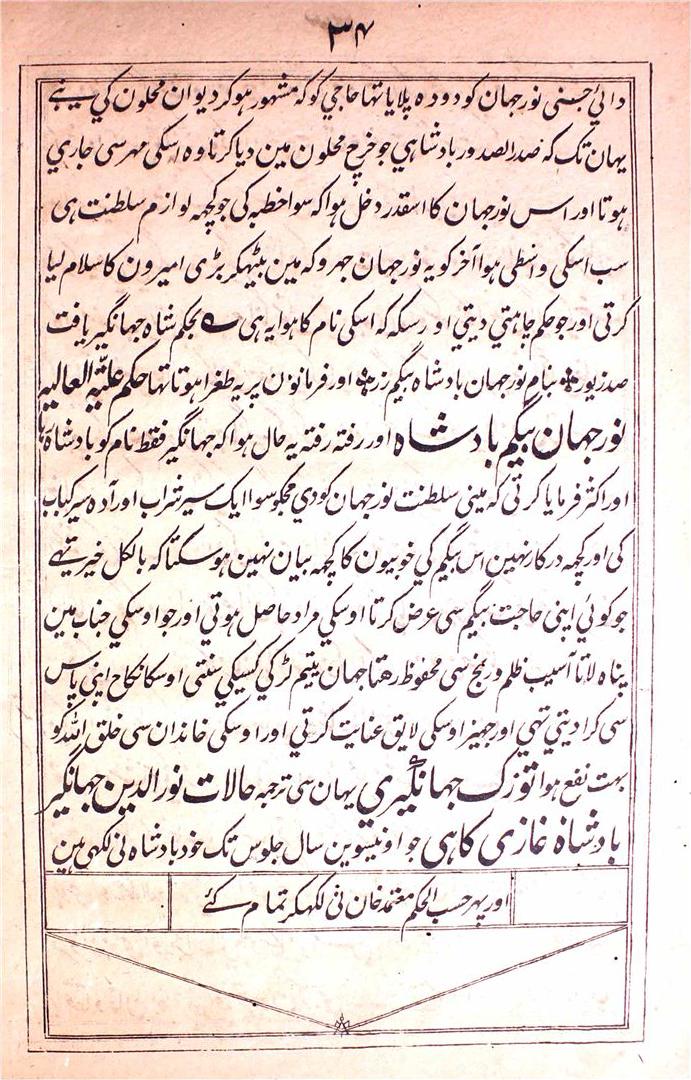 ۳۴
دائي جسنی نورجهان کو دوده پلایا تها حاجي کوکه مشهور ہوکر دیوان محلون کي بنے
یہان تک که صدر الصدور بادشاهي جو خرچ محلون مین دیا کرتا وه اسکی مهر سی جاري
ہوتا اور اس نورجهان کا اسقدر دخل ہوا که سوا خطبه کی جو کچهه لوازم سلطنت ہی
سب اسکی واسطی ہوا آخر کو یه نورجهان جهروکه مین بیٹهکر بڑی امیرون کا سلام لیا
کرتی اور جو حکم چاہتي دیتي اور سکه که اسکی نام کا ہوا یه ہی بحکم شاه جهانگیر یافت
صد زیور بنام نورجهان بادشاه بیگم زر اور فرمانون پر یه طغرا ہوتا تها حکم علیّة العالیه
نور جهان بیگم بادشاه اور رفته رفته یه حال ہوا که جهانگیر فقط نام کو بادشاه رہا
اور اکثر فرمایا کرتی که مینی سلطنت نورجهان کو دی مجکو سوا ایک سیر شراب اور آده سیر کباب
کی اور کچهه درکار نهین اس بیگم کي خوبیون کا کچهه بیان نهین ہوسکتا که بالکل خیر تهے
جو کوئي اپنی حاجت بیگم سی عرض کرتا اوسکي مراد حاصل ہوتي اور جو اوسکي جناب مین
پناه لاتا آسیب ظلم و رنج سی محفوظ رهتا جهان یتیم لڑکي کسیکي سنتی اوسکا نکاح اپنی پاس
اسی کرا دیتي تهي اور جهیز اوسکی لایق عنایت کرتي اور اوسکی خاندان سی خلق الله کو
بهت نفع ہوا توزک جهانگیري یهان سی ترجمه حالات نور الدین جهانگیر
بادشاه غازی کا ہی جو اونیسوین سال جلوس تک خود بادشاه نی لکهی ہین
اور پهر حسب الحکم معتمد خان نی لکهکر تمام کئے